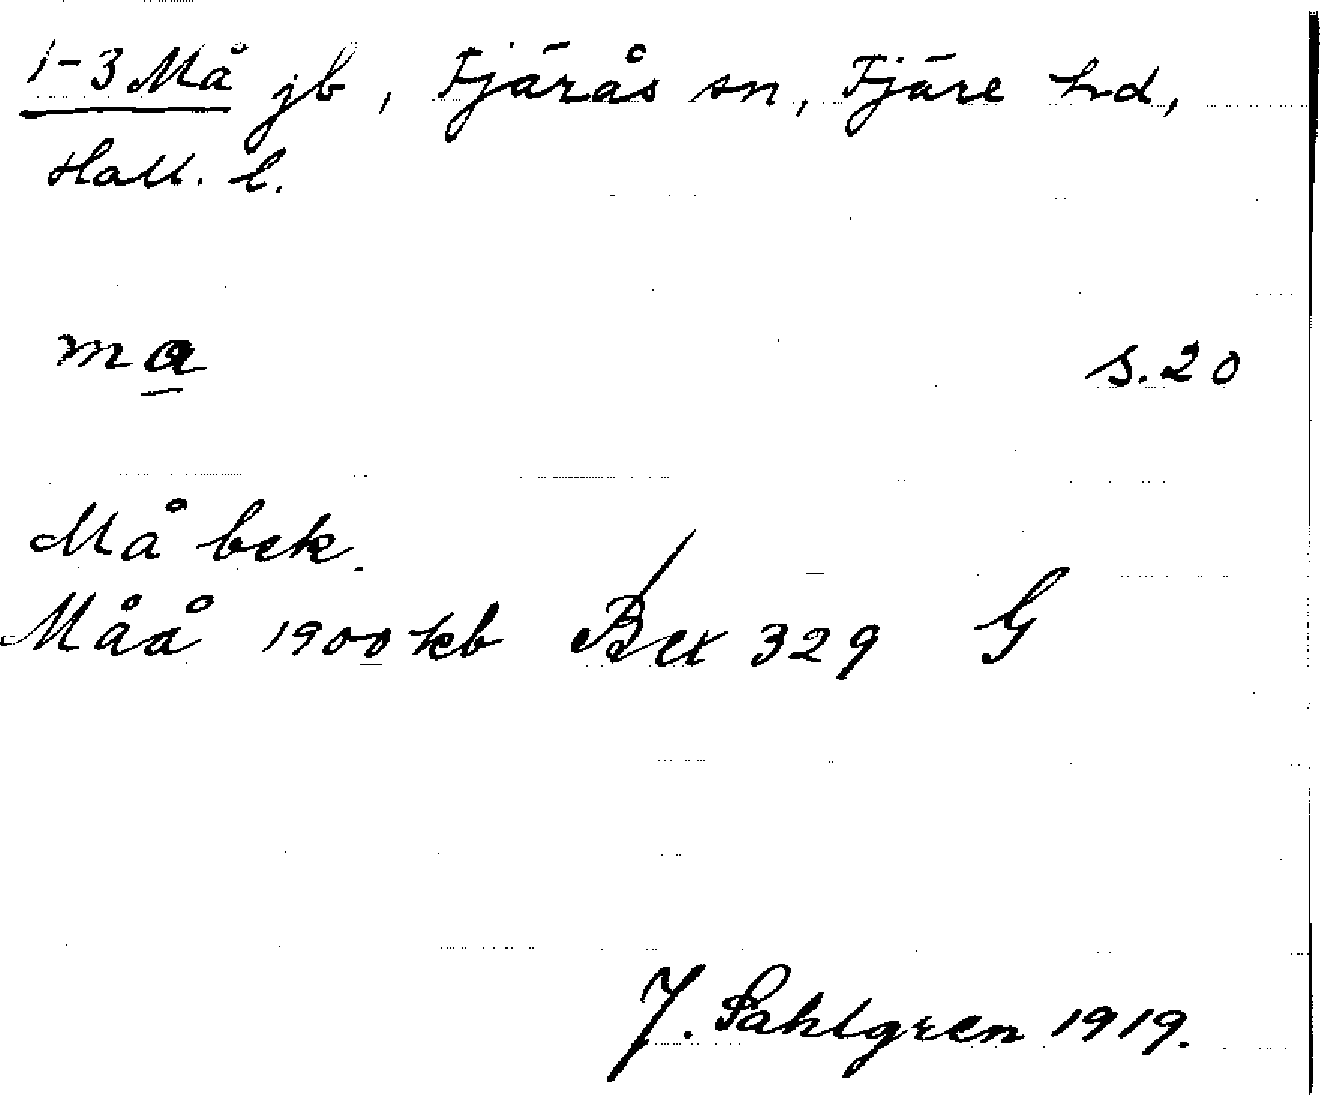 1-3 Må jb, Fjärås sn, Fjäre hd,
Hall. l.
ma s. 20
Må bek.
Måå 1900 kb Bex 329 G
J. Sahlgren 1919.